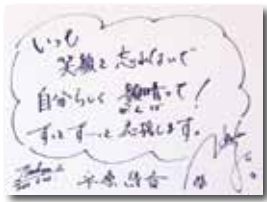 いつも
笑顔を忘れないで
自分らしく頑晴って!
ずっとずーっと応援します。
平原綾香